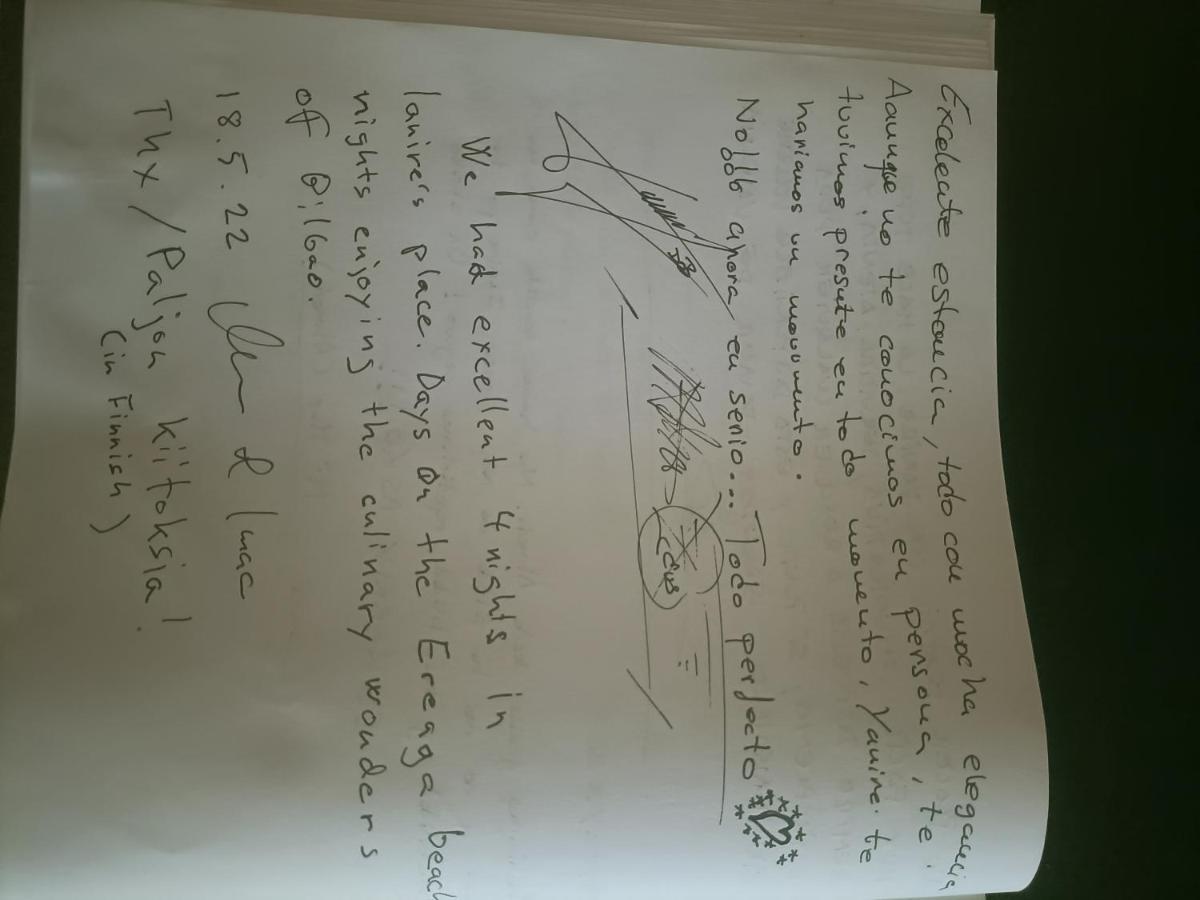 Excelente estancia, todo con mocha elegancia
Aaunque no te conocimos en persona, te
tuvimos presente en todo momento, Yanire te
hariamos un monumento.
Nollb ahora en serio... Todo perfecto
We had excellent 4 nights in
Ianire's place. Days on the Ereaga beach
nights enjoying the culinary wonders
of Bilbao.
18.5.22 & Imac
Thx / Paljon kiitoksia!
(in Finnish)